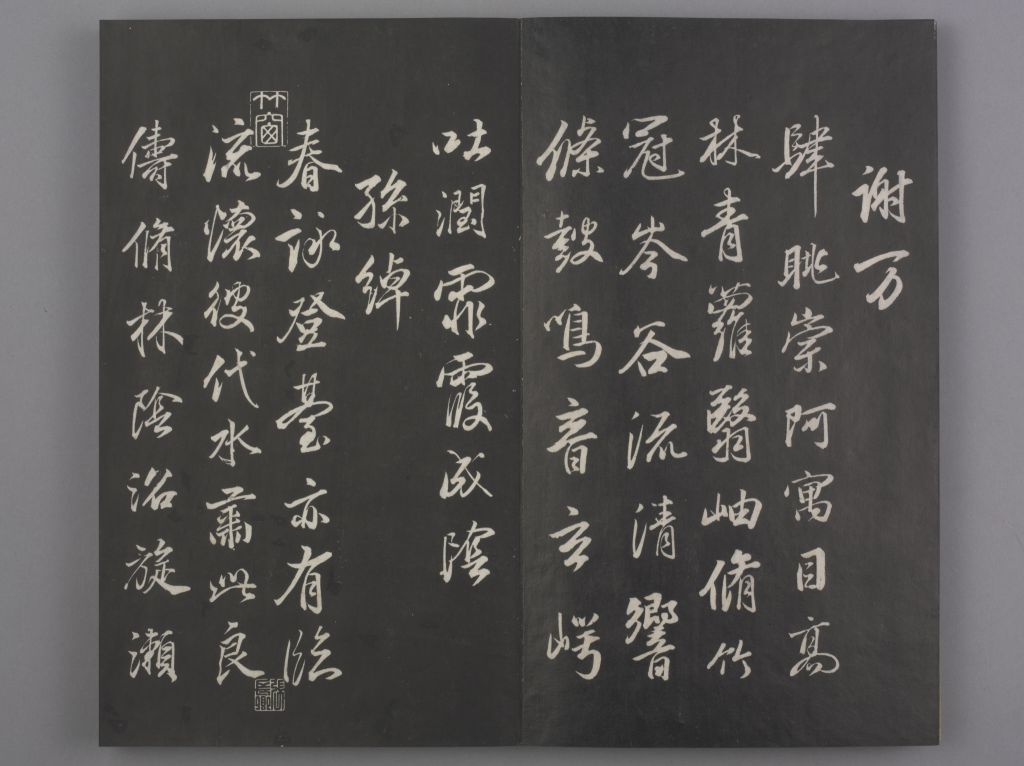 謝万
肆眺崇阿寓目高
林青蘿翳岫脩竹
冠岑谷流清響
條鼓鳴音玄崿
吐潤霏霞成陰
孫綽
春詠登臺亦有臨
流懷彼伐木肅此良
儔脩林陰沼旋瀨
竹窗